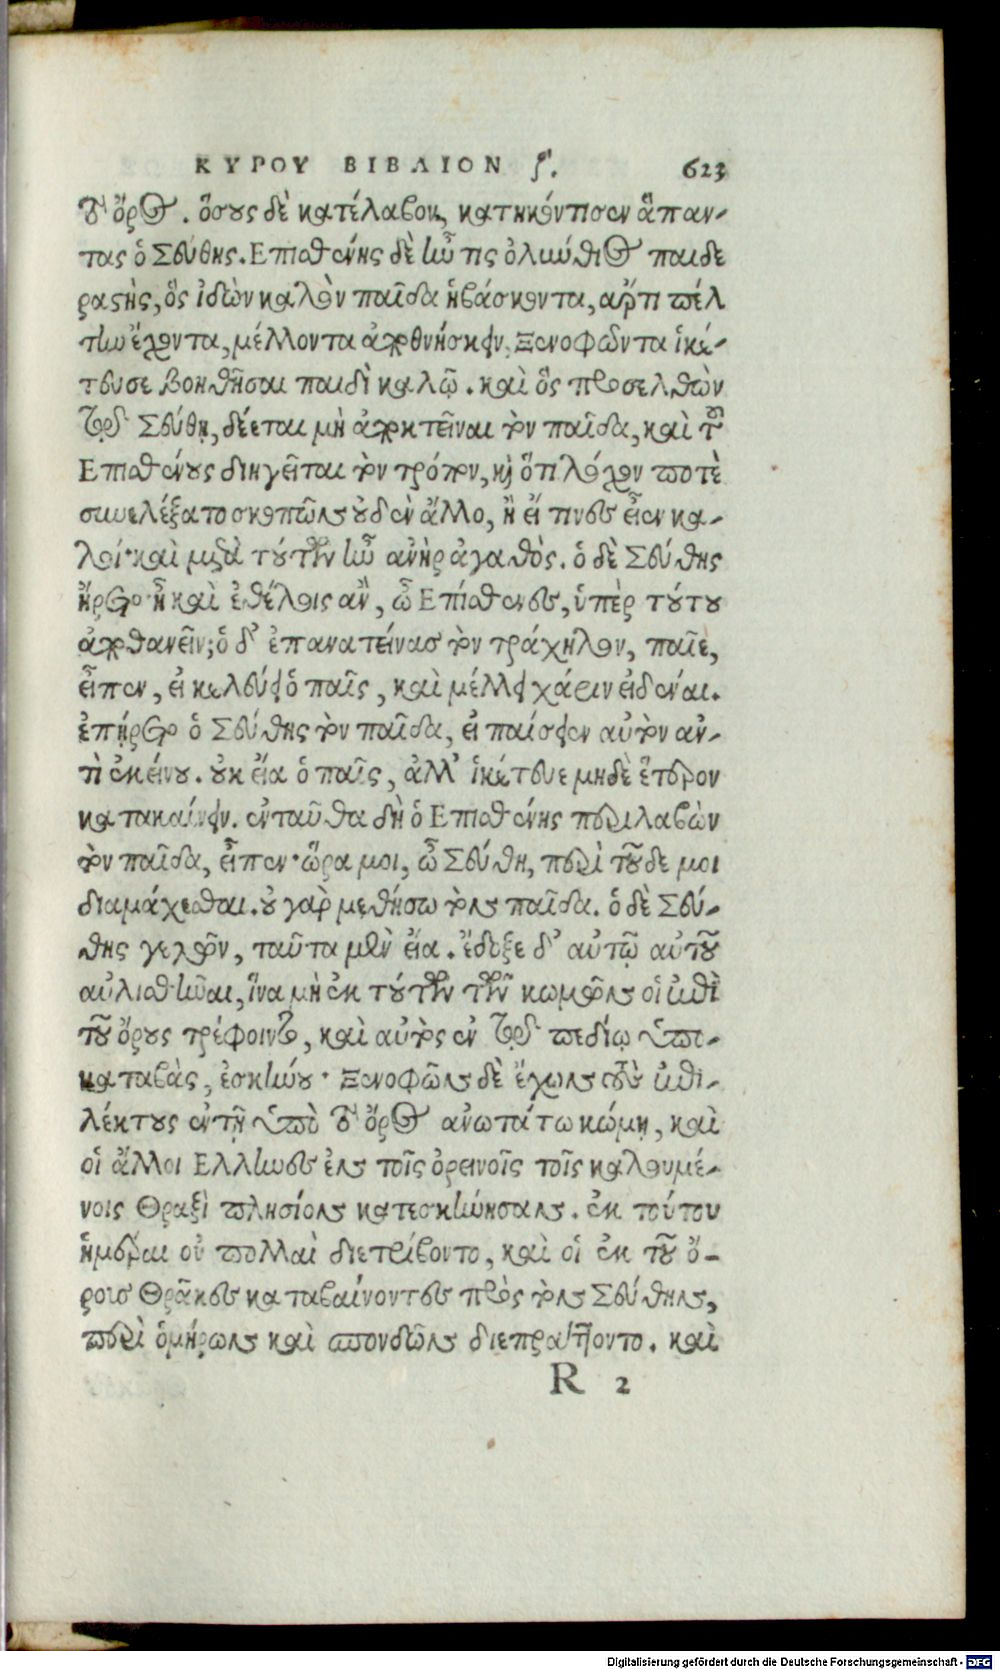 ΚΥΡΟΥ ΒΙΒΛΙΟΝ ζʹ. 623
τοῦ ὄρος. ὅσους δὲ κατέλαβον, κατηκόντισεν ἅπαν-
τας ὁ Σεύθης. Επισθένης δὲ ἦν τις ὀλιώθιος παιδε
ραστὴς, ὃς ἰδὼν καλὸν παῖδα ἡβάσκοντα, ἄρτι πέλ
τιω ἔχοντα, μέλλοντα ἀποθνήσκειν, Ξενοφῶντα ἱκέ-
τευσε βοηθῆσαι παιδὶ καλῷ. καὶ ὃς προσελθὼν
τῷ Σεύθῃ, δέεται μὴ ἀποκτεῖναι τὸν παῖδα, καὶ τοῦ
Επισθένους διηγεῖται τὸν τρόπον, καὶ ὅτι λόχον ποτὲ
συνελέξατο σκοπῶν οὐδὲν ἄλλο, ἢ εἴ τινες εἶεν κα-
λοί· καὶ μετὰ τούτων ἦν ἀνὴρ ἀγαθὸς. ὁ δὲ Σεύθης
ἤρετο· ἦ καὶ ἐθέλοις ἂν, ὦ Επίσθενες, ὑπὲρ τούτου
ἀποθανεῖν; ὁ δ' ἐπανατείνας τὸν τράχηλον, παῖε,
εἶπεν, εἰ κελεύει ὁ παῖς, καὶ μέλλει χάριν εἰδέναι.
ἐπήρετο ὁ Σεύθης τὸν παῖδα, εἰ παίσειεν αὐτὸν ἀν-
τὶ ἐκείνου. οὐκ εἴα ὁ παῖς, ἀλλ' ἱκέτευε μηδὲ ἕτερον
κατακαίνειν. ἐνταῦθα δὴ ὁ Επισθένης περιλαβὼν
τὸν παῖδα, εἶπεν· ὥρα μοι, ὦ Σεύθη, περὶ τοῦδε μοι
διαμάχεσθαι. οὐ γὰρ μεθήσω τὸν παῖδα. ὁ δὲ Σεύ-
θης γελῶν, ταῦτα μὲν εἴα. ἔδοξε δ' αὐτῷ αὐτοῦ
αὐλισθῆναι, ἵνα μὴ ἐκ τούτων τῶν κωμῶν οἱ ἐπὶ
τοῦ ὄρους τρέφοιντο, καὶ αὐτὸς ἐν τῷ πεδίῳ ὑπο-
καταβὰς, ἐσκήνου· Ξενοφῶν δὲ ἔχων τοὺς ἐπι-
λέκτους ἐν τῇ ὑπὸ τὸ ὄρος ἀνωτάτω κώμῃ, καὶ
οἱ ἄλλοι Ελληνες ἐν τοῖς ὀρεινοῖς τοῖς καλουμέ-
νοις Θραξὶ πλησίον κατεσκήνησαν. ἐκ τούτου
ἡμέραι οὐ πολλαὶ διετρίβοντο, καὶ οἱ ἐκ τοῦ ὄ-
ρους Θρᾷκες καταβαίνοντες πρὸς τὸν Σεύθην,
περὶ ὁμήρων καὶ σπονδῶν διεπράττοντο. καὶ
R 2
Digitalisierung gefördert durch die Deutsche Forschungsgemeinschaft - DFG